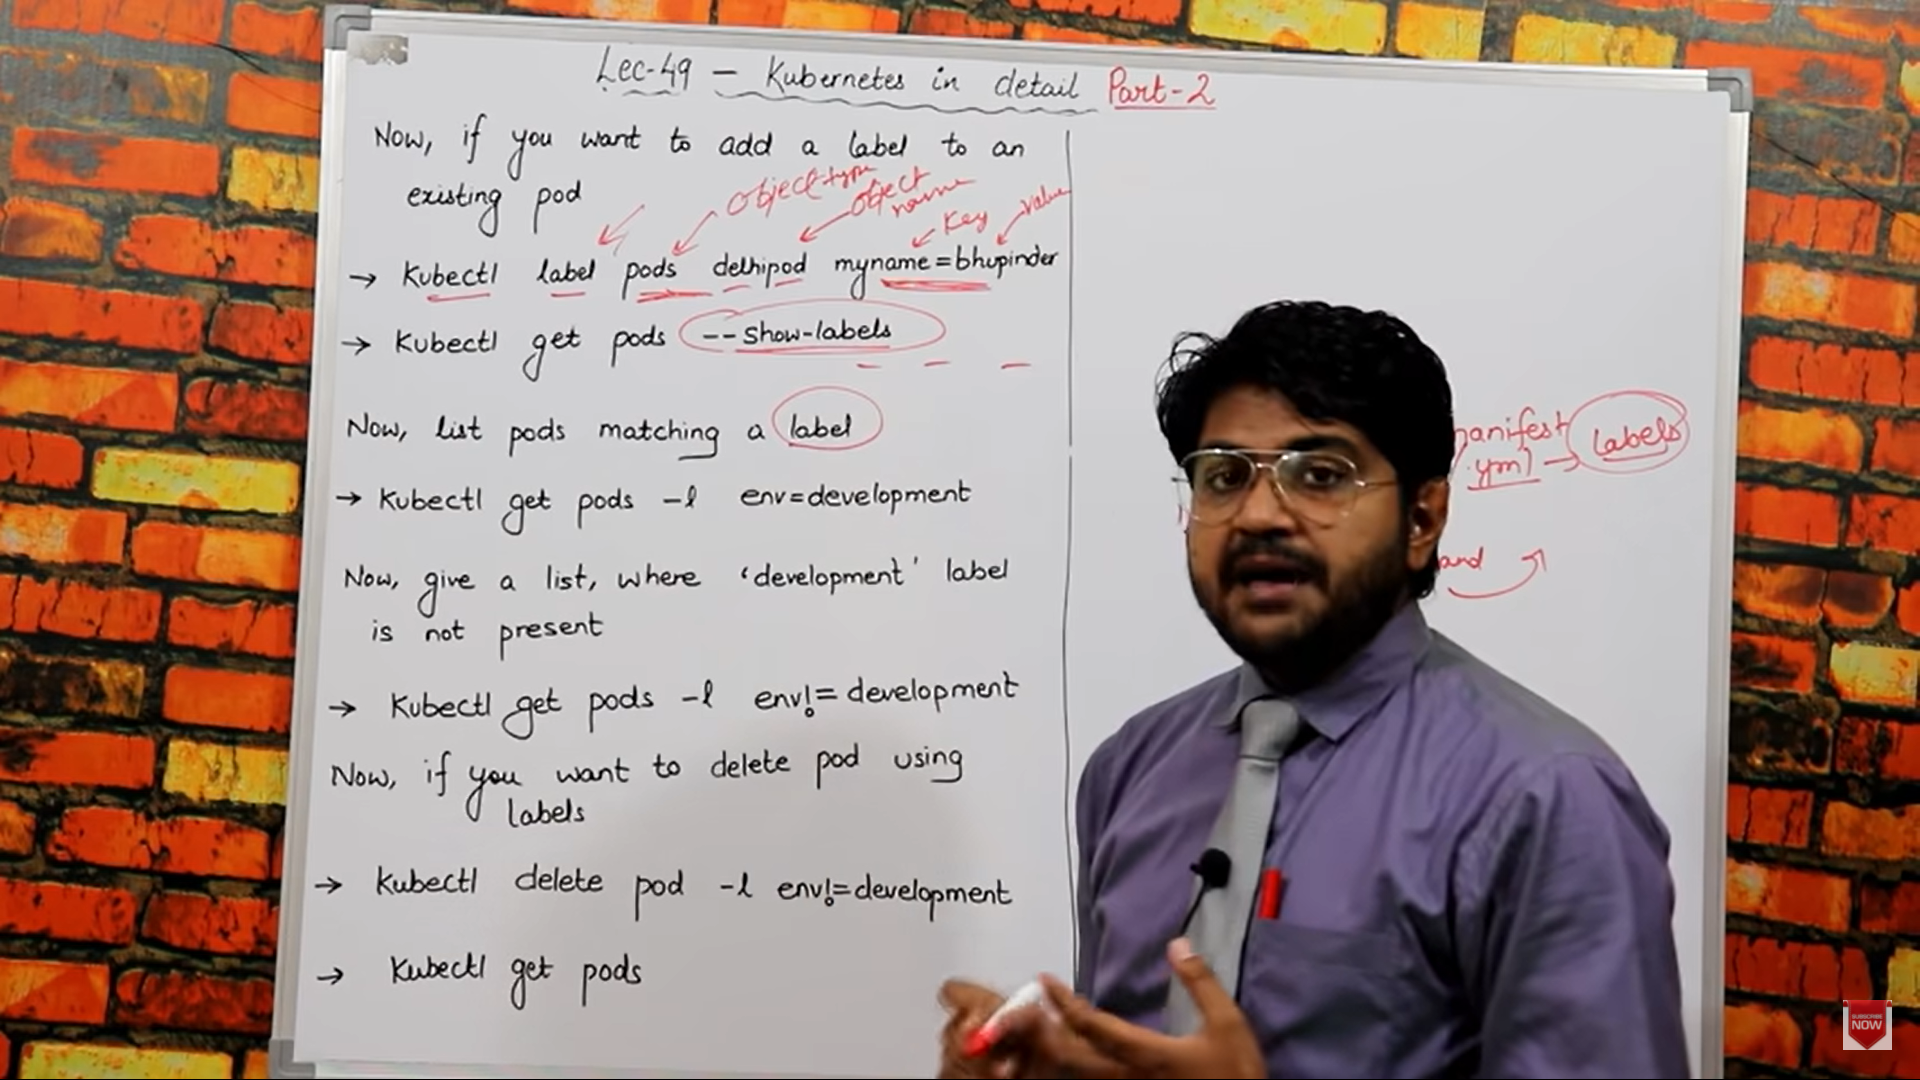 Lec-49 - Kubernetes in detail Part-2
Now, if you want to add a label to an
existing pod
object type
object
name
Key
value
→ Kubectl label pods delhipod myname=bhupinder
→ Kubectl get pods --show-labels
Now, list pods matching a label
→ Kubectl get pods -l env=development
Now, give a list, where 'development' label
is not present
→ Kubectl get pods -l env!=development
Now, if you want to delete pod using
labels
→ Kubectl delete pod -l env!=development
→ Kubectl get pods
manifest
.yml → labels
SUBSCRIBE
NOW